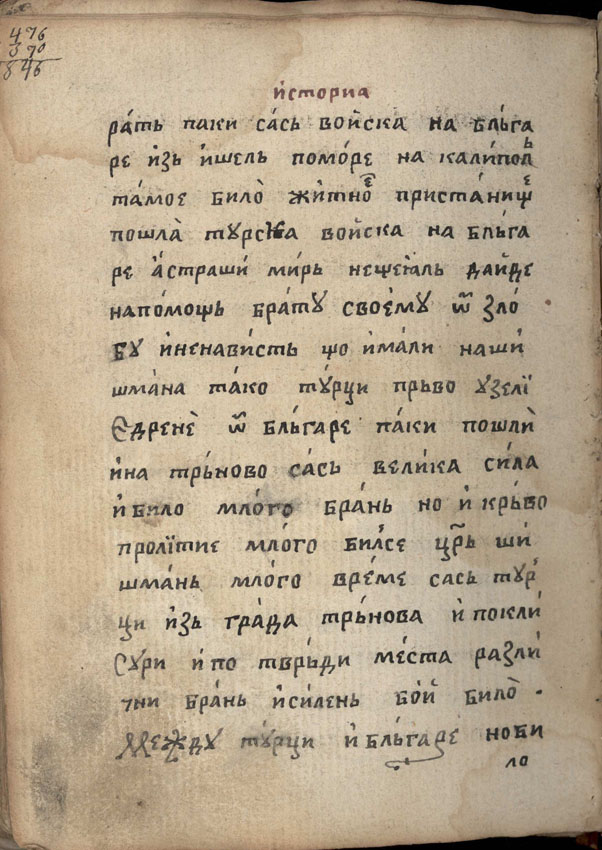 476
370
846
и҆сторїа
ра́ть паки са́сь вои̑ска на бль́га
ре и҆зь и҆шель помо́ре на калипол̾ь
та́мое било̀ жи́тноѐ приста́нище
пошла̀ тꙋрска вои̑ска на бль́га
ре а҆страши́ ми́рь нещеꙗ́ль даи̑де
напо́мощь бра́тꙋ своє́мꙋ ѿ зло́
бꙋ и҆ненави́сть що и҆ма́ли наши́
шма́на та́ко тꙋ́рци прьво ꙋзелї
Єдрене̏ ѿ бль́гаре па́ки пошлѝ
и҆на трь́ново са́сь велика си́ла
и҆ било мло́го бра́нь но и҆ крь́во
пролїтие мло́го билсе цр҃ь ши́
шма́нь мло́го вре́ме сась тꙋр́
ци и҆зь гра́да трь́нова и҆ покли́
Сꙋ́ри и҆ по тврь́ди ме́ста разли́
чни бра́нь и҆си́лень бои̑ било̀ ·
Междꙋ тꙋ́рци и҆ бль́гаре но би
ло